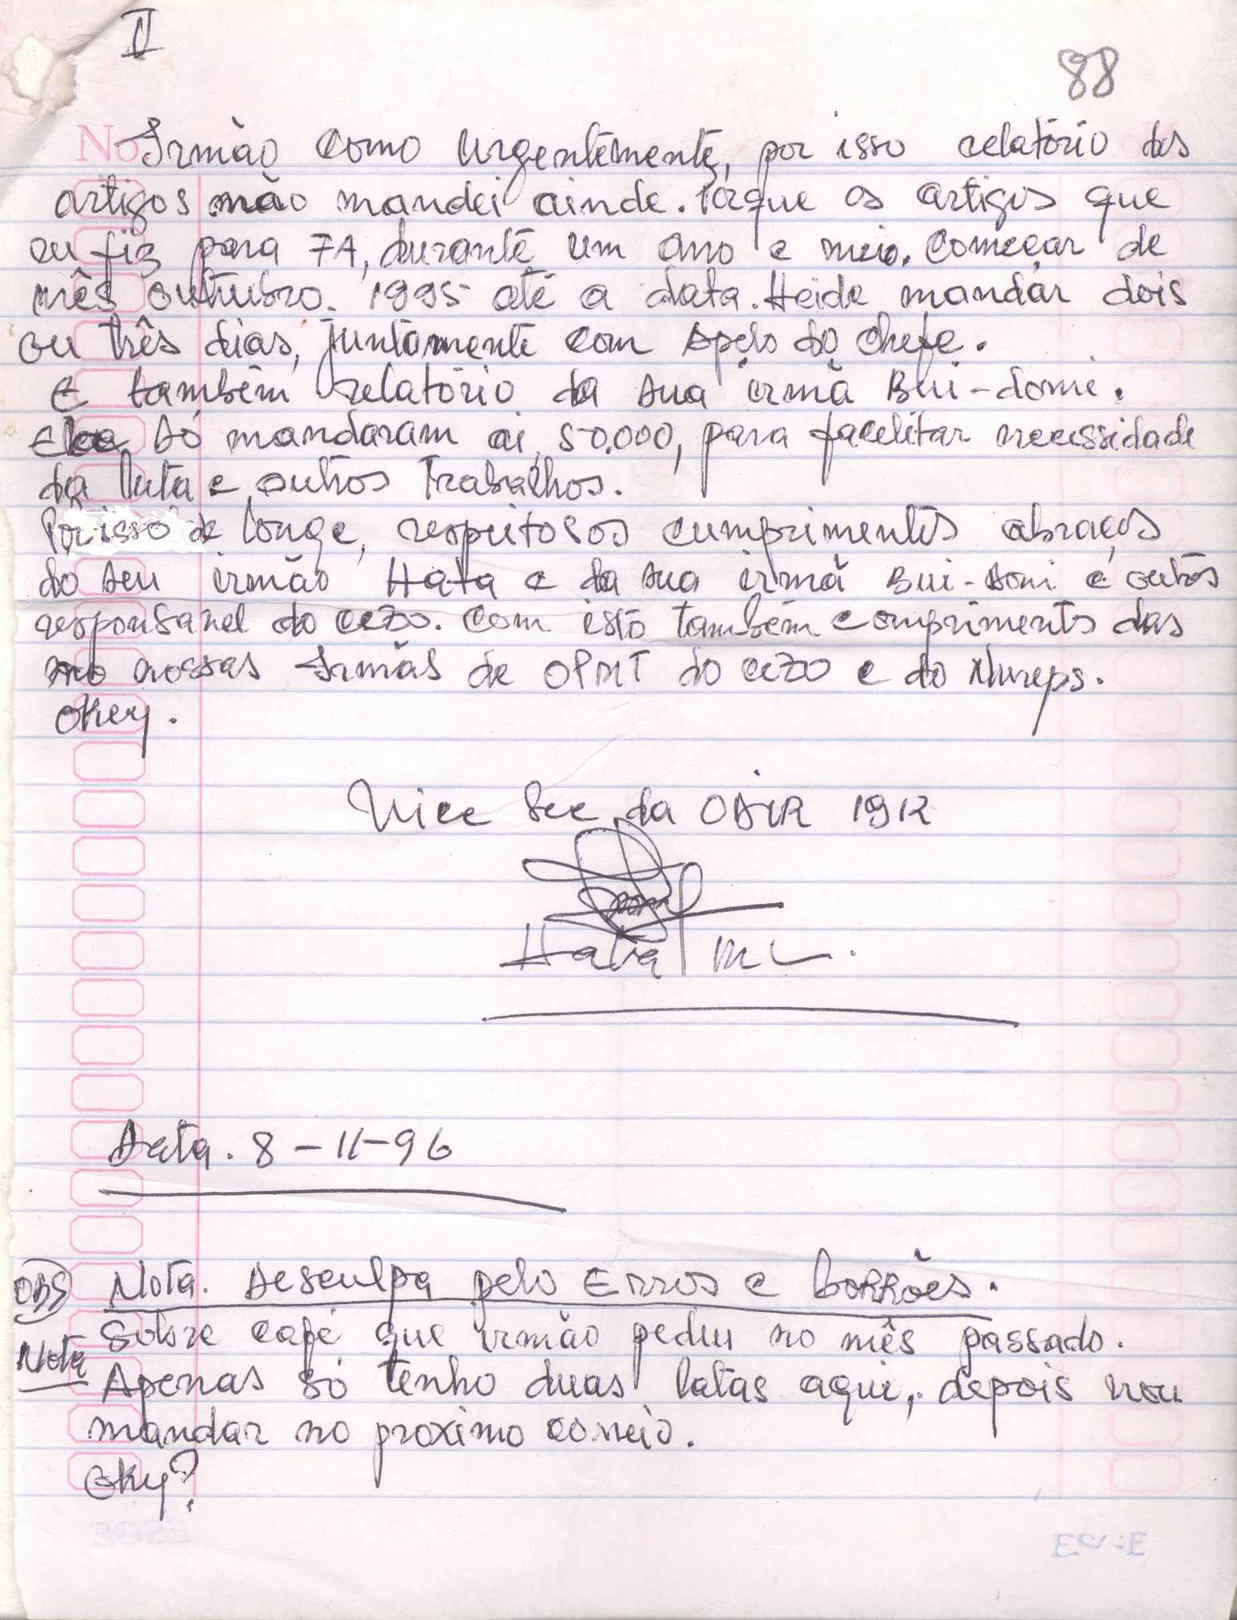 II
88
No
Irmão como urgentemente, por isso relatório dos
artigos não mandei ainde. Porque os artigos que
eu fiz para FA, durante um ano e meio. Começar de
mês outubro. 1995 até a data. Heide mandar dois
ou três dias, juntamente com Apelo do chefe.
E também relatório da sua irmã Bui-domi.
Só mandaram ai, 50.000, para facelitar necessidade
da luta e outros Trabalhos.
Por isso de longe, respeitosos cumprimentos abraços
do seu irmão Hata e da sua irmã Bui-domi e outros
responsavel do cezo. Com isto também comprimentos das
nossas Irmãs de OPMT do cezo e do Nureps.
Okey.
Vice Sec da 1912
Data. 8-11-96
OBS Nota. Desculpa pelo Erros e borrões.
Nota Sobre café que irmão pediu no mês passado.
Apenas só tenho duas latas aqui, depois vou
mandar no proximo correio.
Oky?